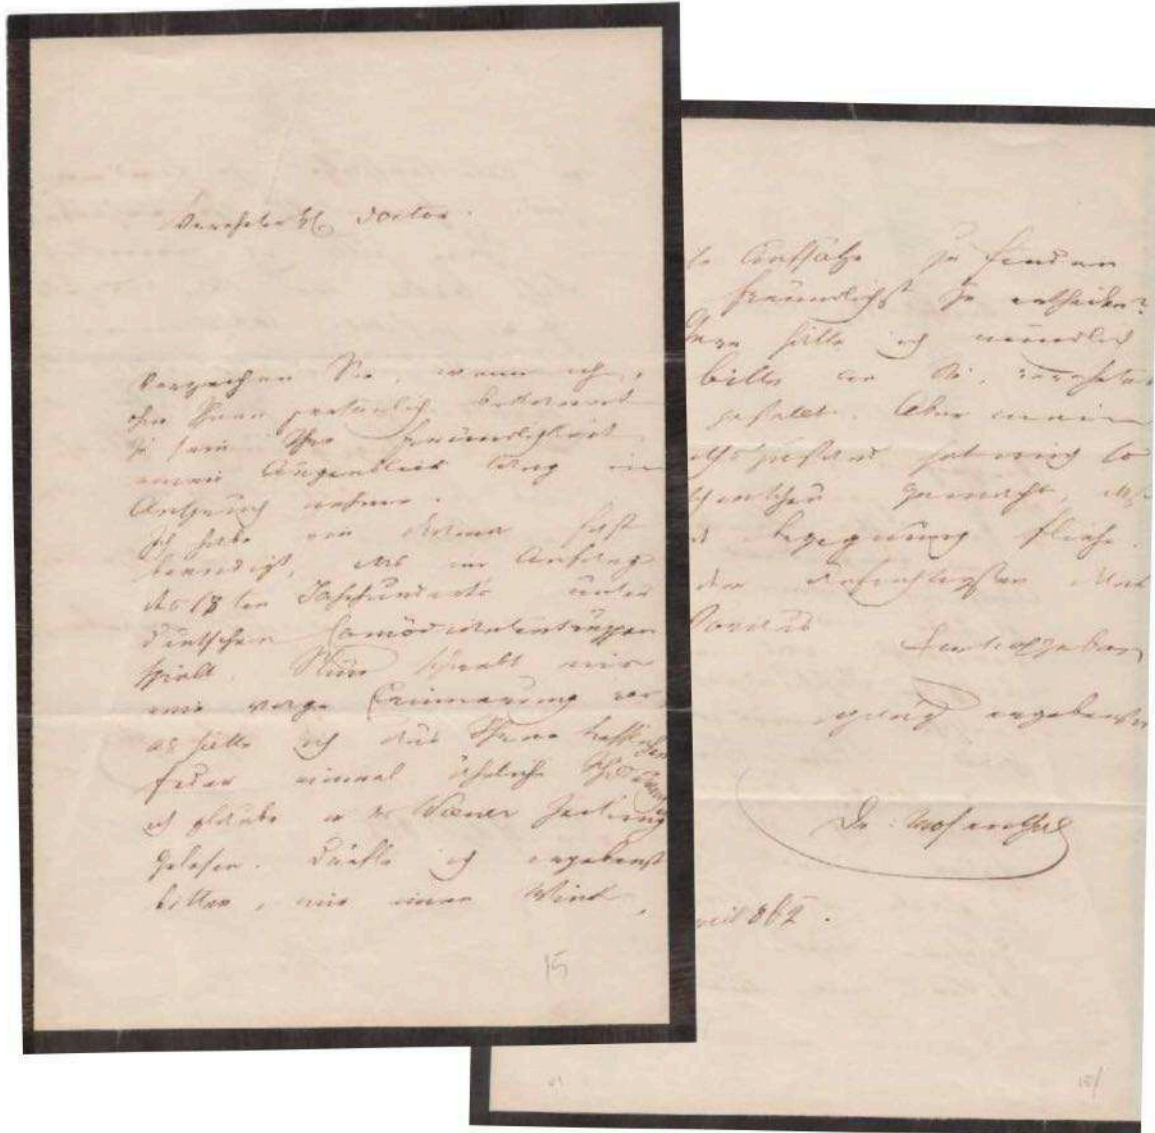 Verehrter H. Doctor.
Verzeihen Sie, wenn ich,
ohne Ihnen persönlich bekannt
zu sein Ihre Freundlichkeit
einen Augenblick lang in
Anspruch nehme.
Ich habe ein Drama fast
beendigt, das im Anfang
des 18ten Jahrhunderts unter
deutschen Comödiantentruppen
spielt. Nun schwebt mir
eine vage Erinnerung vor,
als hätte ich aus Ihrer
Feder einmal ähnliche
ich glaube in der Wiener Zeitung
gelesen. Dürfte ich ergebenst
bitten, mir einen Wink,
Aufsätze zu finden
freundlichst zu ertheilen?
Gern hätte ich mündlich
bitte an Sie, verehrter
gestellt. Aber mein
hat mich so
gemacht,
Begegnung fliehe.
der
ganz ergebenster
Dr. Mosenthal
ril 862.
15
15/